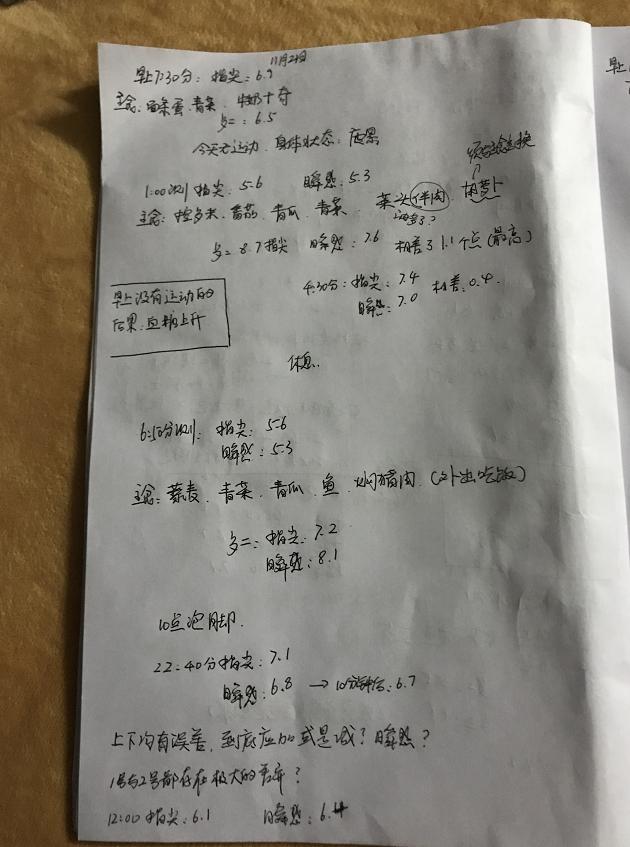 11月21日
早上7:30分：指尖：6.9
主食：鸡蛋、青菜、牛奶
多二：6.5
今天无运动，身体状态：疲累
1:00测 指尖：5.6 瞬感：5.3
菜头伴肉 胡萝卜
主食：糙多米、番茄、青瓜、青菜
多二 8.7指尖 瞬感：7.6 相差了1.1个点（最高）
4:30分：指尖：7.4 相差：0.4
瞬感：7.0
早上没有运动的
后果：血糖上升
休息..
6:50分测：指尖：5.6
瞬感：5.3
主食：荞麦、青菜、青瓜、鱼、焖猪肉、（外出吃饭）
多二：指尖：7.2
瞬感：8.1
10点泡脚.
22:40分指尖：7.1
瞬感：6.8 → 10分钟后：6.7
上下均有误差，到底应加或是减？瞬感？
1号与2号都存在极大的差异？
12:00指尖：6.1 瞬感：6.4
早上